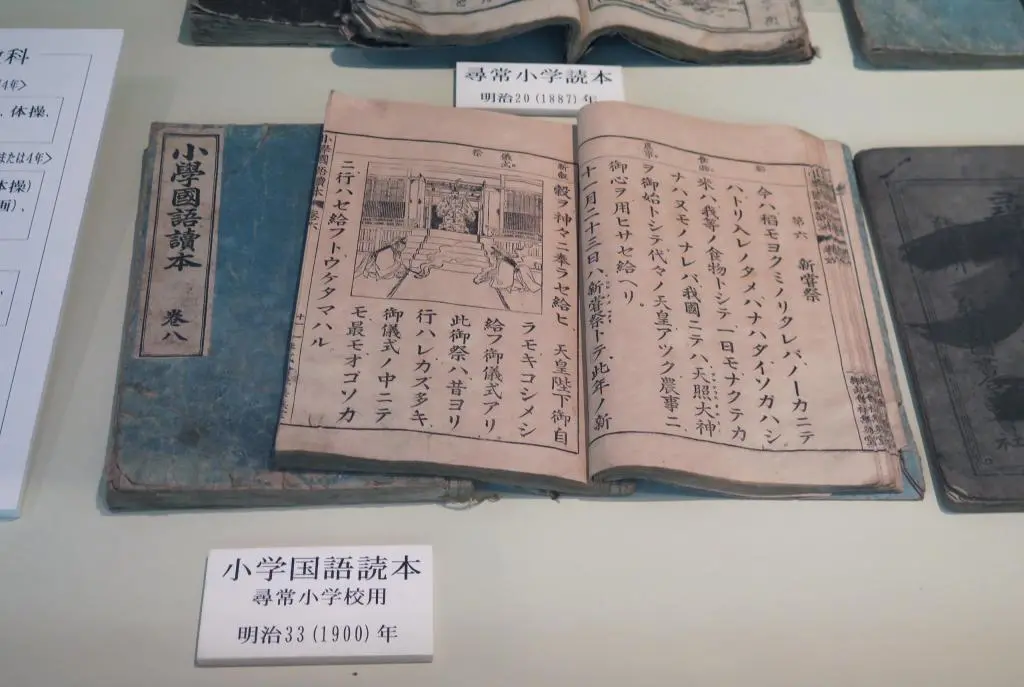 尋常小学読本
明治20(1887)年
科
4年>
、体操、
または4年>
体操)
小學國語讀本 卷八
第六 新嘗祭
今ハ稻モヨクミノリタレバ、ノーカニテ
ハトリ入レノタメ、ハナハダイソガハシ
米ハ、我等ノ食物トシテ一日モナクテカ
ナハヌモノナレバ、我國ニテハ、天照大神
ヲ御始トシテ代々ノ天皇アツク農事ニ
御心ヲ用ヒサセ給ヘリ。
十一月二十三日ハ、新嘗祭トテ、此年ノ新
農事。
新穀
儀式。
祭
穀ヲ神々ニ奉ラセ給ヒ、天皇陛下御自
ラモキコシメシ
給フ御儀式アリ
此御祭ハ昔ヨリ
行ハレカズ多キ
御儀式ノ中ニテ
モ最モオゴソカ
ニ行ハセ給フトウケタマハル
小学国語読本
尋常小学校用
明治33(1900)年